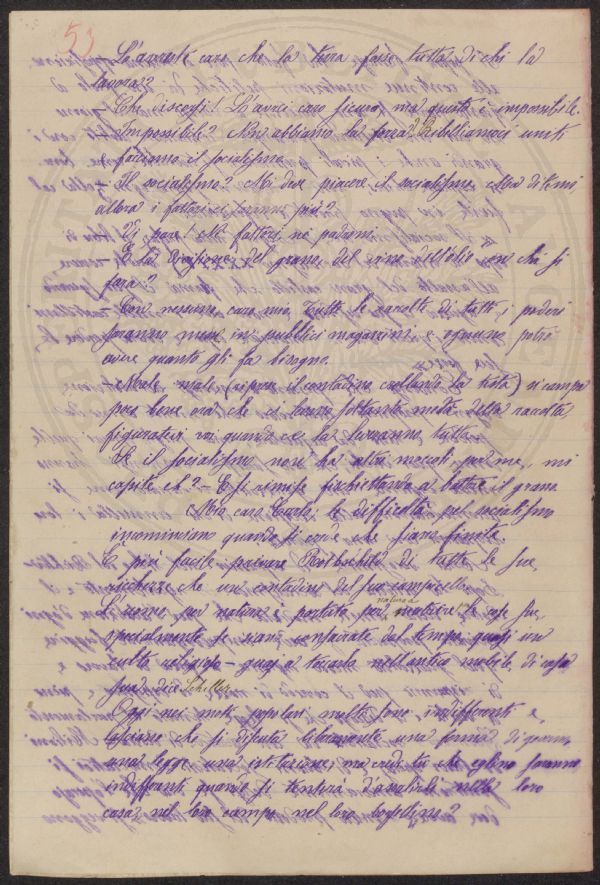 53
L'avreste caro che la terra fosse tutta di chi la
lavora?
- Che discorsi! L'avrei caro sicuro, ma questo è impossibile.
- Impossibile? Non abbiamo la forza? Ribelliamoci uniti
e facciamo il socialismo.
- Il socialismo? Mi deve piacere il socialismo. Ma ditemi
allora i fattori ci saranno più?
- Vi pare! Nè fattori nè padroni.
- E la divisione del grano, del vino dell'olio con chi si
farà?
- Con nessuno, caro mio. Tutte le raccolte di tutti i poderi
saranno messe in pubblici magazzini e ognuno potrà
avere quanto gli fa bisogno.
- Male, male (riprese il contadino crollando la testa) si campa
poco bene ora che ci levano soltanto metà della raccolta,
figuratevi voi quando ce la leveranno tutta.
Se il socialismo non ha altri moccoli, per me, mi
capite eh? - E si rimise fischiettando a battere il grano.
Mio caro Carlo; le difficoltà pel socialismo
incominciano quando si crede che siano finite.
È più facile privare Rothschild di tutte le sue
ricchezze che un contadino del suo campicello.
L'uomo, per natura è portato per
natura
le cose sue
specialmente se siano consacrate dal tempo quasi un
culto religioso - guai a toccarlo nell'antico mobile di casa
sua dice Schiller
Oggi nei moti popolari molti sono indifferenti e
lasciano che si disputi liberamente una forma di governo,
una legge, una istituzione, ma credi tu che eglino saranno
indifferenti quando si tenterà d'assalirli nella loro
casa, nel loro campo, nel loro borsellino?